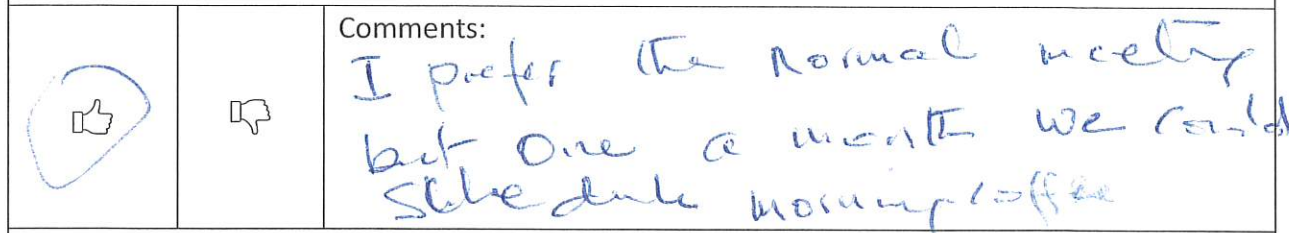 Comments:
I prefer the Normal meeting
but One a month we could
Schedule morning coffee